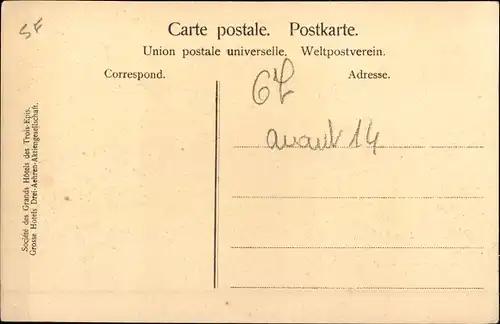 5F
Carte postale. Postkarte.
Union postale universelle. Weltpostverein.
Correspond. Adresse.
avant 14
Société des Grands Hôtels des Trois-Epis.
Grosse Hotels Drei-Aehren-Aktiengesellschaft.